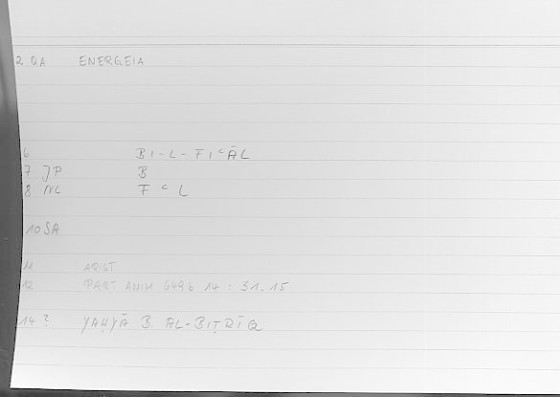 2 QA ENERGEIA
6 BI-L-FIᶜĀL
7 JP B
8 NL F ᶜ L
10 SA
11 ARIST
12 PART ANIM 649b 14 : 31.15
14 ? YAḤYĀ B AL-BIṬRĪQ